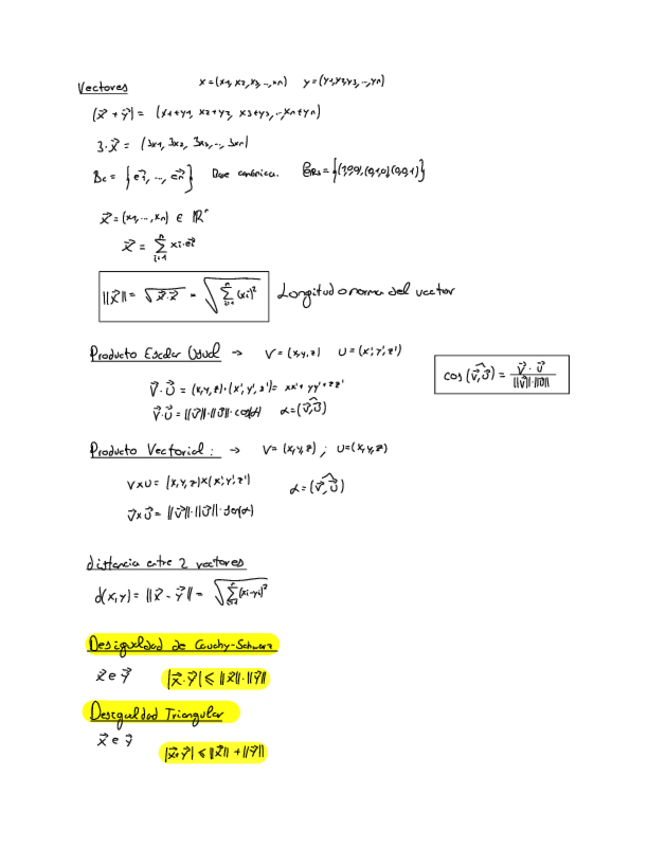 Vectores x=(x1, x2, x3, ..., xn) y=(y1, y2, y3, ..., yn)
(x⃗ + y⃗) = (x1+y1, x2+y2, x3+y3, ..., xn+yn)
3·x⃗ = (3x1, 3x2, 3x3, ..., 3xn)
Bc = {e⃗1, ..., e⃗n} Base canónica. BR3 = {(1,0,0), (0,1,0), (0,0,1)}
x⃗ = (x1, ..., xn) ∈ ℝⁿ
x⃗ = ∑ᵢ₌₁ⁿ xi·e⃗i
||x⃗|| = √(x⃗·x⃗) = √(∑ᵢ₌₁ⁿ (xi)²) Longitud o norma del vector
Producto Escalar Usual → V=(x,y,z) U=(x',y',z')
V⃗·U⃗ = (x,y,z)·(x',y',z') = xx'+yy'+zz'
V⃗·U⃗ = ||V⃗||·||U⃗||·cos(α) α=(V⃗,U⃗)
cos(V⃗,U⃗) = V⃗·U⃗ / ||V⃗||·||U⃗||
Producto Vectorial: → V=(x,y,z); U=(x,y,z)
VxU = (x,y,z)x(x',y',z') α=(V⃗,U⃗)
V⃗xU⃗ = ||V⃗||·||U⃗||·sen(α)
distancia entre 2 vectores
d(x,y) = ||x⃗ - y⃗|| = √(∑ᵢ₌₁ⁿ (xi-yi)²)
Desigualdad de Cauchy-Schwarz
x⃗ e y⃗ |x⃗·y⃗| ≤ ||x⃗||·||y⃗||
Desigualdad Triangular
x⃗ e y⃗ |x⃗+y⃗| ≤ ||x⃗|| + ||y⃗||